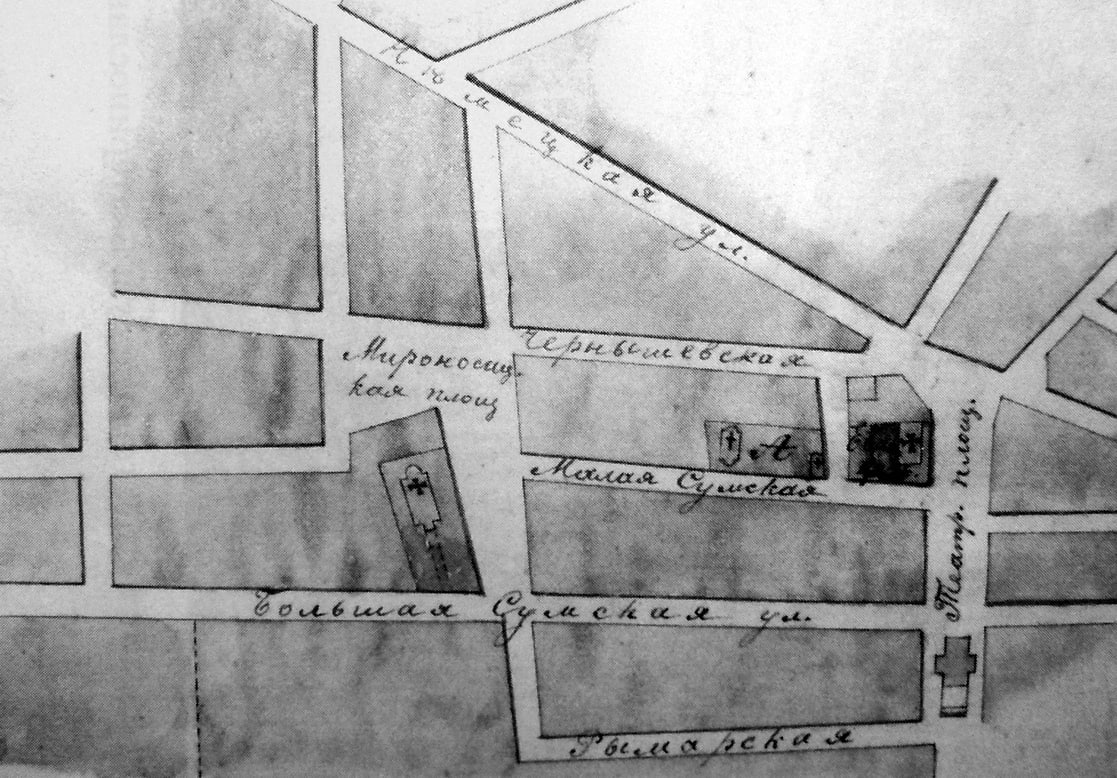 Нѣмецкая ул.
Чернышевская
Мироносиц-
кая площ
А
Малая Сумская
Театр. площ.
Большая Сумская ул.
Рымарская